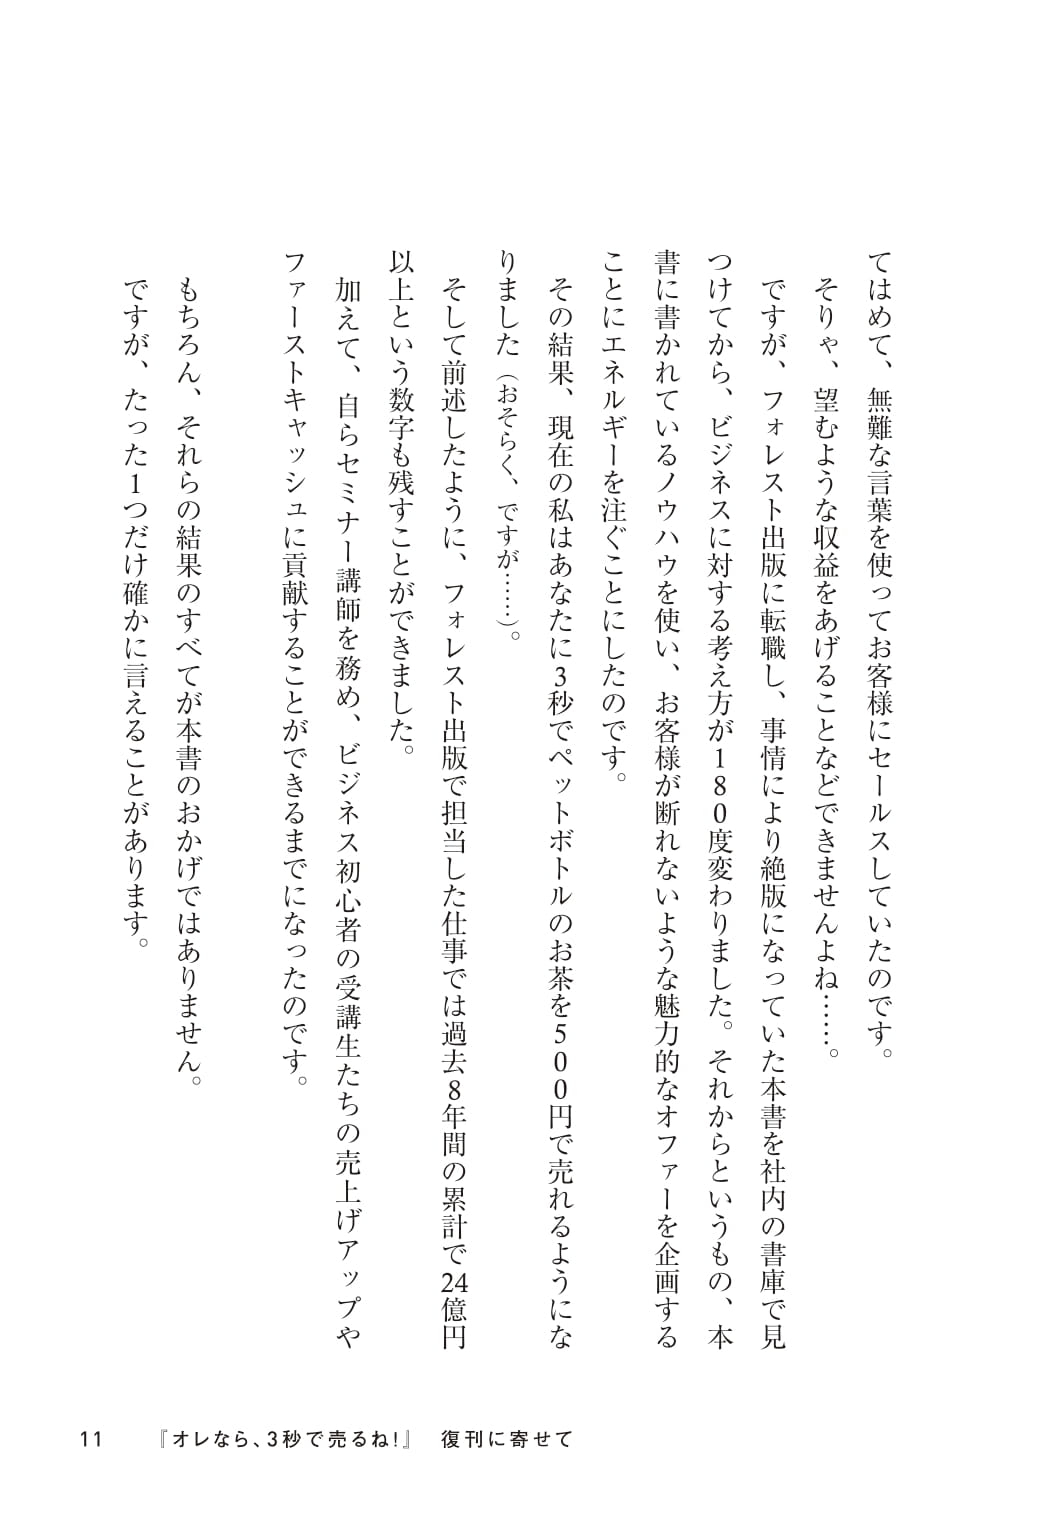 てはめて、無難な言葉を使ってお客様にセールスしていたのです。
そりゃ、望むような収益をあげることなどできませんよね……。
ですが、フォレスト出版に転職し、事情により絶版になっていた本書を社内の書庫で見
つけてから、ビジネスに対する考え方が180度変わりました。それからというもの、本
書に書かれているノウハウを使い、お客様が断れないような魅力的なオファーを企画する
ことにエネルギーを注ぐことにしたのです。
その結果、現在の私はあなたに3秒でペットボトルのお茶を500円で売れるようにな
りました（おそらく、ですが……）。
そして前述したように、フォレスト出版で担当した仕事では過去8年間の累計で24億円
以上という数字も残すことができました。
加えて、自らセミナー講師を務め、ビジネス初心者の受講生たちの売上げアップや
ファーストキャッシュに貢献することができるまでになったのです。
もちろん、それらの結果のすべてが本書のおかげではありません。
ですが、たった1つだけ確かに言えることがあります。
11 『オレなら、3秒で売るね!』 復刊に寄せて